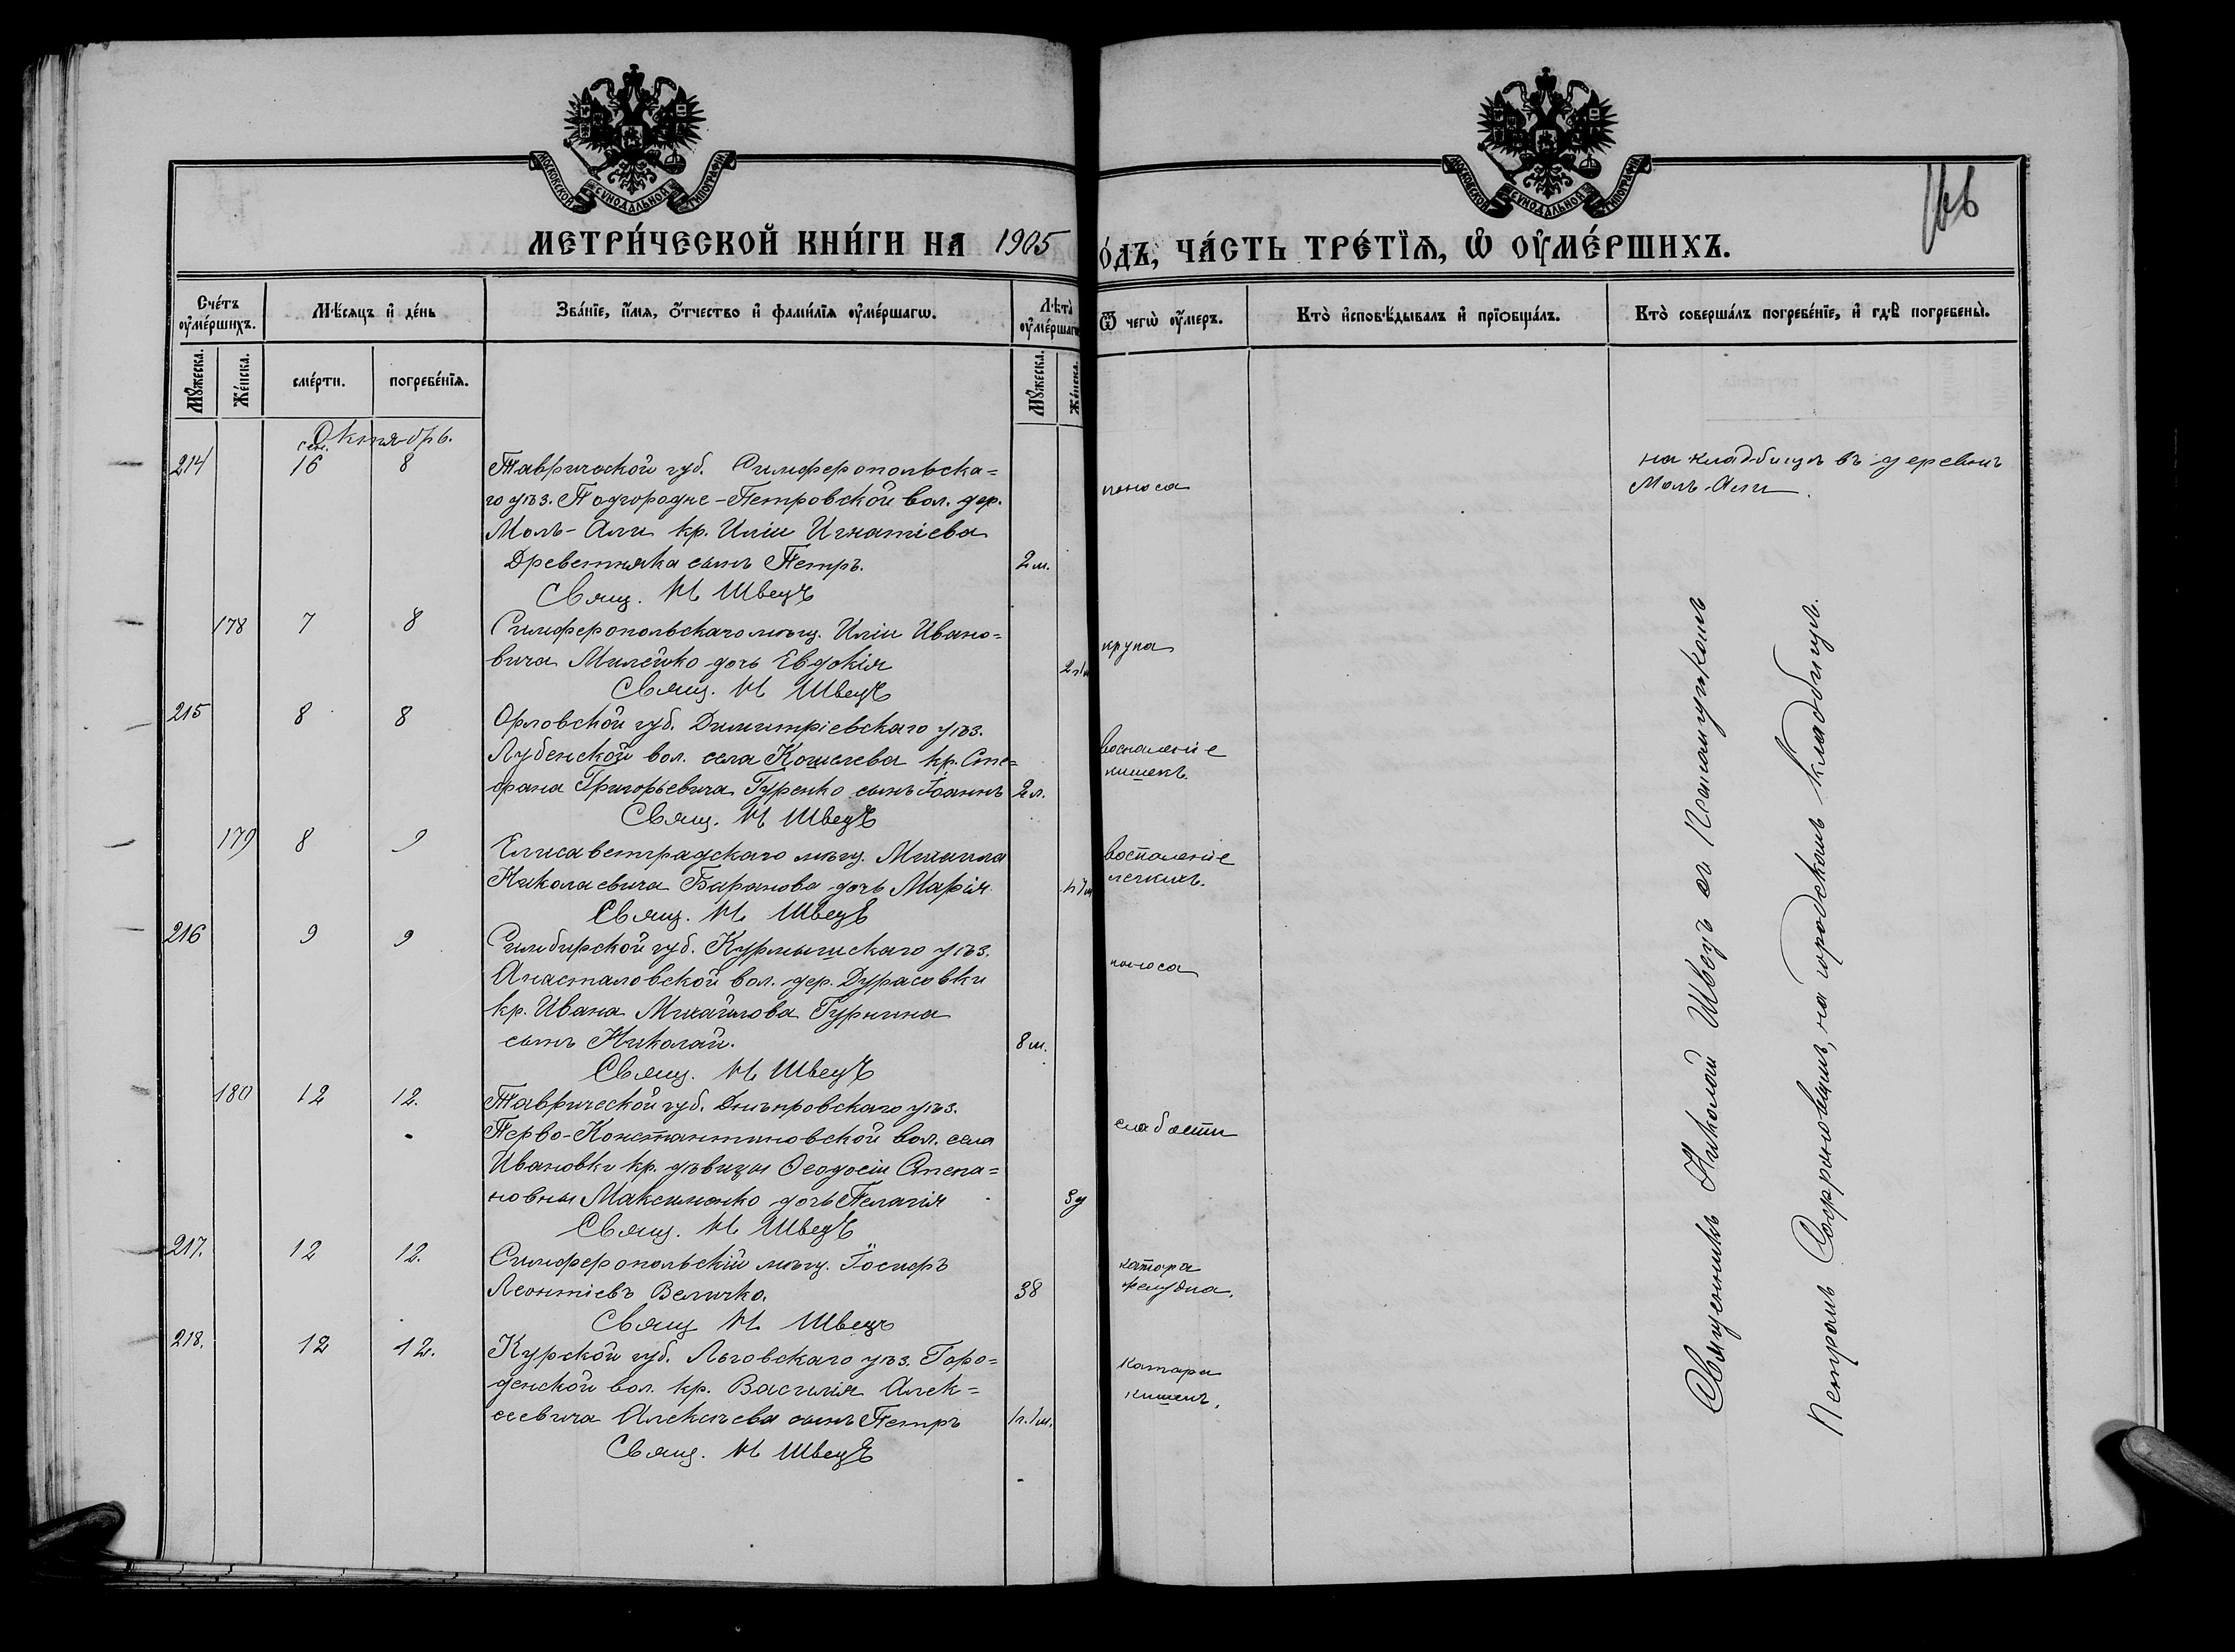 МОСКОВСКОЙ СѴНОДАЛЬНОЙ ТИПОГРАФІИ
МОСКОВСКОЙ СѴНОДАЛЬНОЙ ТИПОГРАФІИ
МЕТРИ́ЧЕСКОЙ КНИ́ГИ НА 1905
О́ДЪ, ЧА́СТЬ ТРЕ́ТЇѦ, Ѡ҆ ОУ҆МЕ́РШИХЪ.
Сче́тъ оу҆ме́ршихъ.
Мѣ́сяцъ и҆ де́нь
Зва́нїе, и҆́мя, о҆́тчество и҆ фами́лїя оу҆ме́ршагѡ.
Лѣта̀ оу҆ме́ршагѡ
Ѿ чегѡ̀ оу҆́меръ.
Кто̀ и҆сповѣ́дывалъ и҆ прїѡбща́лъ.
Кто̀ соверша́лъ погребе́нїе, и҆ гдѣ̀ погребены̀.
Мꙋ́жеска.
Же́нска.
сме́рти.
погребе́нїя.
Мꙋ́жеска.
Же́нска.
Октябрь.
214 сен. 16 8
Таврической губ. Симферопольска=
го уѣз. Подгородне-Петровской вол. дер.
Моль-Али кр. Иліи Игнатіева
Древетняка сынъ Петръ. 2 м.
Свящ. Н Швецъ
поноса
на кладбищѣ въ деревнѣ
Моль-Али.
178 7 8
Симферопольскаго мѣщ. Иліи Ивано=
вича Милейко дочь Евдокія
Свящ. Н Швецъ
крупа
215 8 8
Орловской губ. Димитріевскаго уѣз.
Лубенской вол. села Кошелева кр. Сте=
фана Григорьевича Гуренко сынъ Іоаннъ 2 л.
Свящ. Н Швецъ
воспаленіе
кишекъ.
179 8 9
Елисаветградскаго мѣщ. Михаила
Николаевича Баранова дочь Марія
Свящ. Н Швецъ
воспаленіе
легкихъ.
216 9 9
Симбирской губ. Курмышскаго уѣз.
Анасталовской вол. дер. Дурасовки
кр. Ивана Михайлова Гурнина
сынъ Николай. 8 м.
Свящ. Н Швецъ
поноса
180 12 12.
Таврической губ. Днѣпровскаго уѣз.
Перво-Константиновской вол. села
Ивановки кр. дѣвицы Ѳеодосіи Степа=
новны Максименко дочь Пелагія 3 д
Свящ. Н Швецъ
слабости
217. 12 12.
Симферопольскій мѣщ. Іосифъ
Леонтіевъ Величко. 38
Свящ Н Швецъ
катара
желудка.
218. 12 12.
Курской губ. Льговскаго уѣз. Горо=
денской вол. кр. Василія Алек=
сеевича Алексѣева сынъ Петръ 1 г. 1 м.
Свящ. Н Швецъ
катара
кишекъ.
Священникъ Николай Швецъ съ
Петромъ Софроновымъ, на городскомъ кладбищѣ.